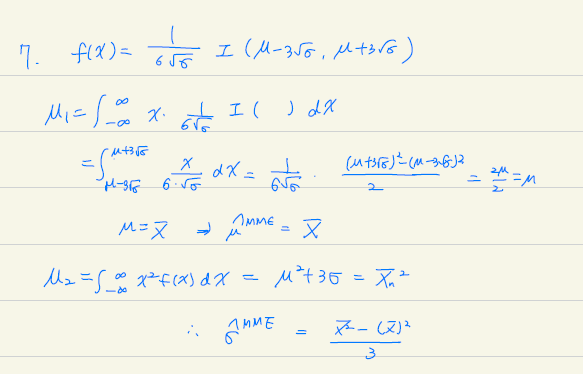 7. f(x) = 1/(6√σ) I (μ-3√σ, μ+3√σ)
μ₁ = ∫_{-∞}^{∞} x · 1/(6√σ) I ( ) dx
= ∫_{μ-3√σ}^{μ+3√σ} x/(6·√σ) dx = 1/(6√σ) · ((μ+3√σ)²-(μ-3√σ)²)/2 = 2μ/2 = μ
μ = X̄ ⇒ μ̂^{MME} = X̄
μ₂ = ∫_{-∞}^{∞} x² f(x) dx = μ²+3σ = X̄ₙ²
∴ σ̂^{MME} = (X̄² - (X̄)²)/3